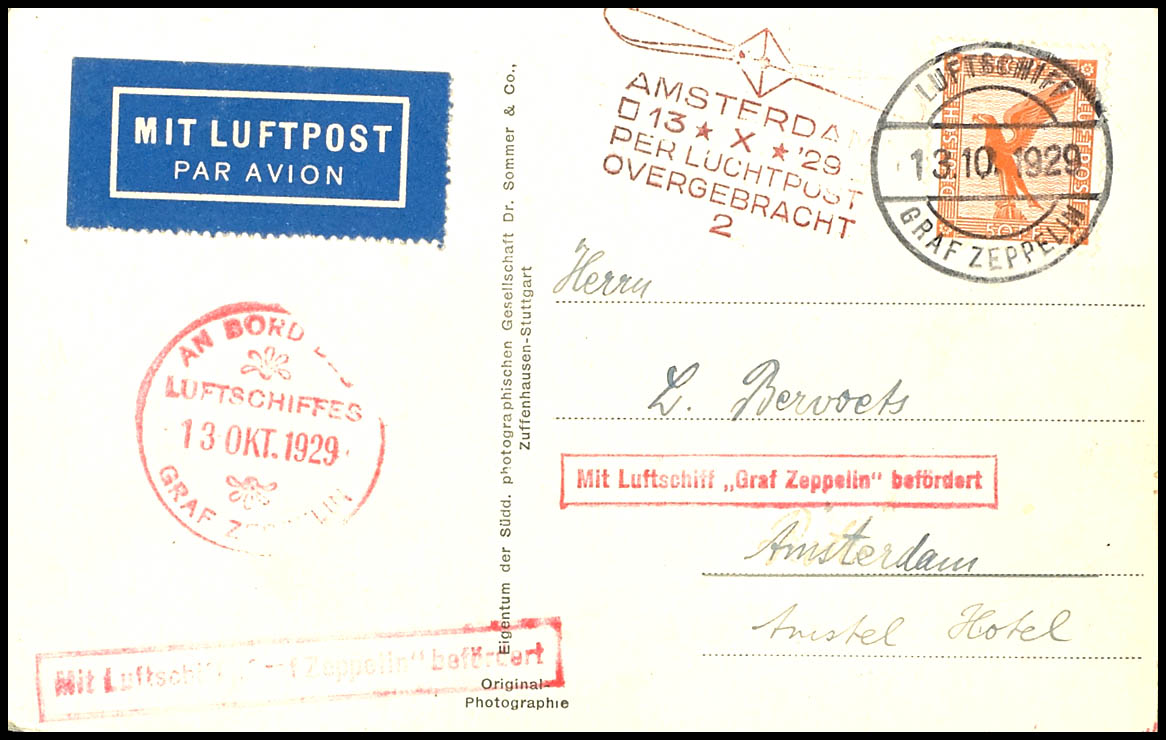 MIT LUFTPOST
PAR AVION
AN BORD
LUFTSCHIFFES
13 OKT. 1929
GRAF ZEPPELIN
Mit Luftschiff „Graf Zeppelin" befördert
Original-
Photographie
Eigentum der Südd. photographischen Gesellschaft Dr. Sommer & Co.,
Zuffenhausen-Stuttgart
AMSTERDAM
13 ★ X ★ '29
PER LUCHTPOST
OVERGEBRACHT
2
LUFTSCHIFF
13.10.1929
GRAF ZEPPELIN
DEUTSCHE
LUFTPOST
50
Herrn
L. Bervoets
Mit Luftschiff „Graf Zeppelin" befördert
Amsterdam
Amstel Hotel